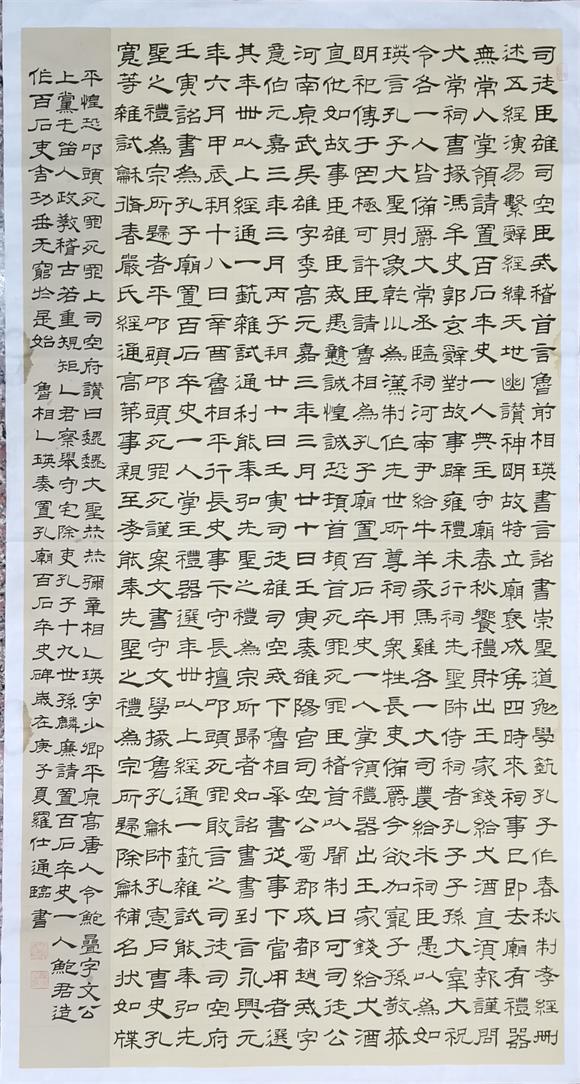 司徒臣雄司空臣戒稽首言魯前相瑛書言詔書崇聖道勉學藝孔子作春秋制孝經刪
述五經演易繫辭經緯天地幽讚神明故特立廟褒成侯四時來祠事已即去廟有禮器
無常人掌領請置百石卒史一人典主守廟春秋饗禮財出王家錢給犬酒直須報謹問
大常祠曹掾馮牟史郭玄辭對故事辟雍禮未行祠先聖師侍祠者孔子子孫大宰大祝
令各一人皆備爵大常丞臨祠河南尹給牛羊豕馬雞各一大司農給米祠臣愚以為如
瑛言孔子大聖則象乾川為漢制作先世所尊祠用眾牲長吏備爵今欲加寵子孫敬恭
明祀傳于罔極可許臣請魯相為孔子廟置百石卒史一人掌領禮器出王家錢給犬酒
直他如故事臣雄臣戒愚戇誠惶誠恐頓首頓首死罪死罪臣稽首以聞制曰可司徒公
河南原武吳雄字季高元嘉三年三月廿十日壬寅奏雒陽宮司空公蜀郡成都趙戒字
意伯元嘉三年三月丙子朔廿十日壬寅司徒雄司空戒下魯相承書從事下當用者選
其年卌以上經通一藝雜試通利能奉弘先聖之禮為宗所歸者如詔書書到言永興元
年六月甲辰朔十八日辛酉魯相平行長史事下守長擅叩頭死罪敢言之司徒司空府
壬寅詔書為孔子廟置百石卒史一人掌主禮器選年卌以上經通一藝雜試能奉弘先
聖之禮為宗所歸者平叩頭叩頭死罪死謹案文書守文學掾魯孔龢師孔憲戶曹史孔
寬等雜試龢脩春嚴氏經通高第事親至孝能奉先聖之禮為宗所歸除龢補名狀如牒
平惶恐叩頭死罪死罪上司空府讚曰巍巍大聖赫赫彌章相乙瑛字少卿平原高唐人令鮑疊字文公
上黨屯留人政教稽古若重規矩乙君察舉守宅除吏孔子十九世孫麟廉請置百石卒史一人鮑君造
作百石吏舍功垂无窮於是始 魯相乙瑛奏置孔廟百石卒史碑歲在庚子夏羅仕通臨書